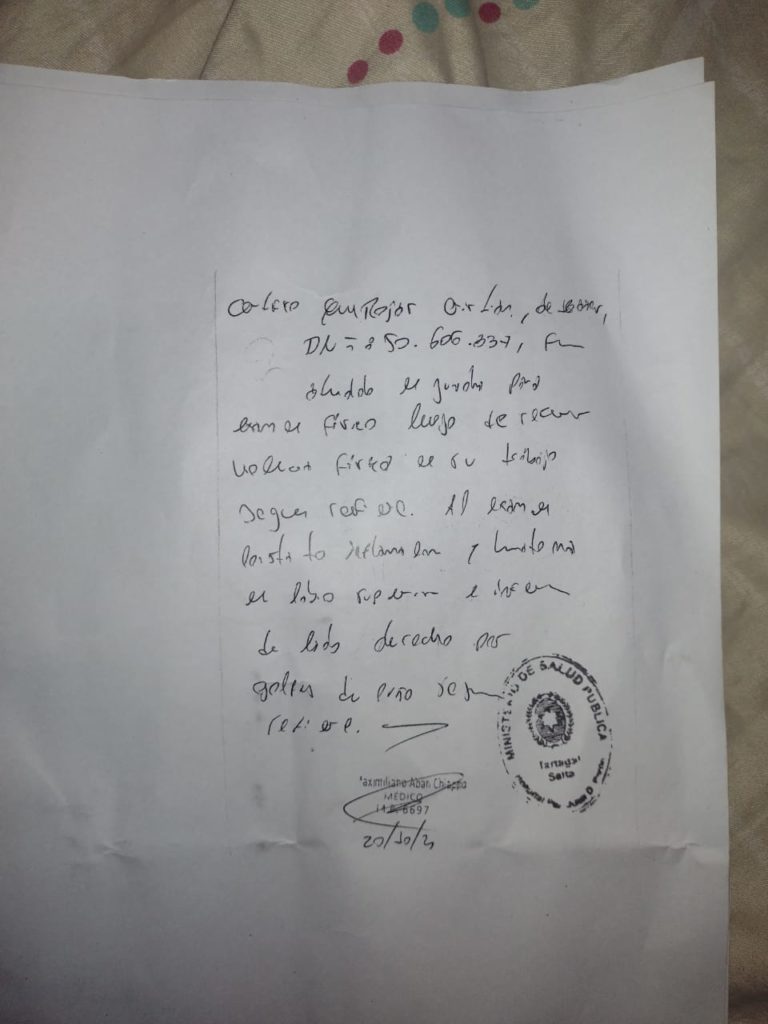 DNI 50.606.337, Fue
en guardia para
examen físico luego de recibir
violencia física en su trabajo
según refiere. Al examen
inflamación y hematoma
en labio superior e inferior
de lado derecho por
golpes de puño según
refiere.
Maximiliano Abán Chiappo
MÉDICO
M.P. 6697
20/10/2
MINISTERIO DE SALUD PUBLICA
Tartagal
Salta
Juan D. Perón